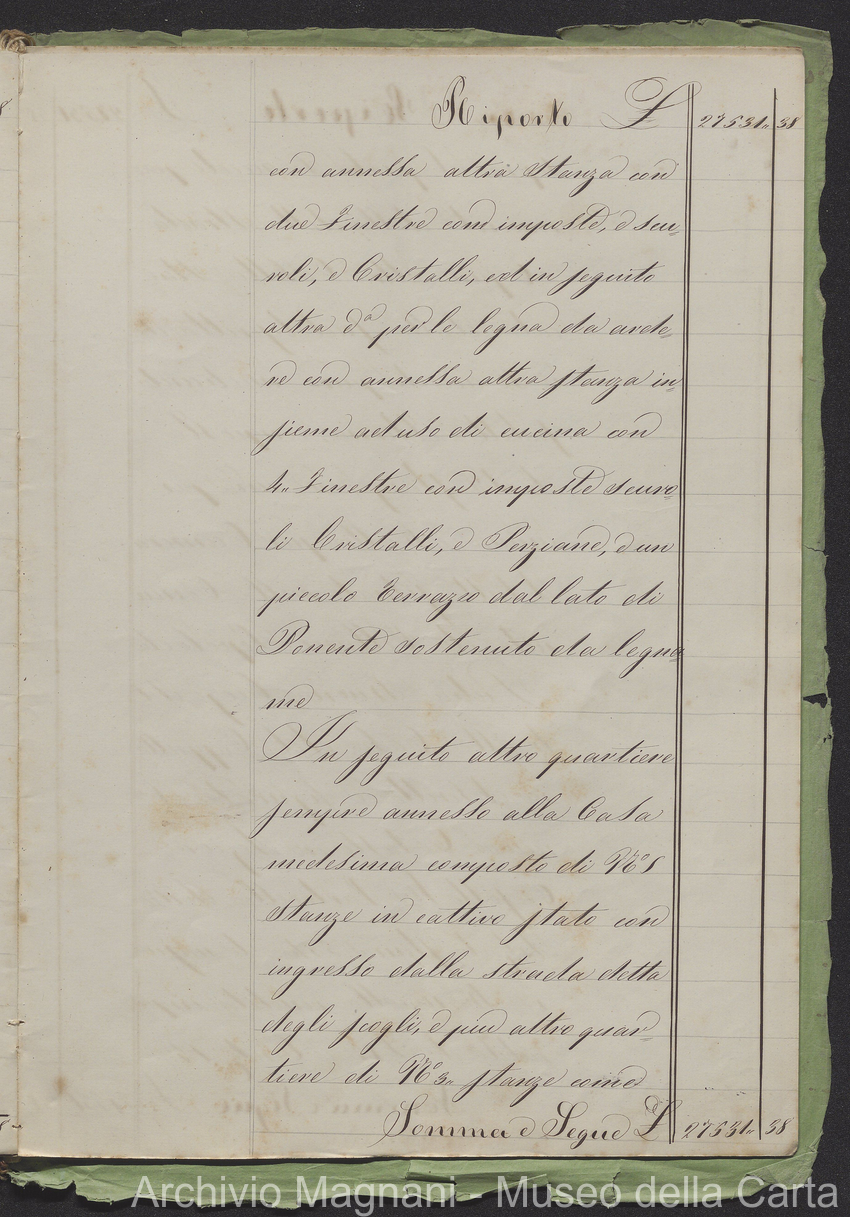 Riporto £ 27531,, 38
con annessa altra Stanza con
due Finestre con imposte, e scu=
roli, e Cristalli, ed in seguito
altra d.a per le legna da arde=
re con annessa altra stanza in=
sieme ad uso di cucina con
4,, Finestre con imposte scuro
li Cristalli, e Perziane, e un
piccolo Terrazzo dal lato di
Ponente sostenuto da legna
me
In seguito altro quartiere
sempre annesso alla Casa
medesima composto di N°5
Stanze in cattivo stato con
ingresso dalla strada detta
degli scogli, e più altro quar=
tiere di N° 3,, stanze come
Somma e Segue £ 27531,, 38
Archivio Magnani - Museo della Carta